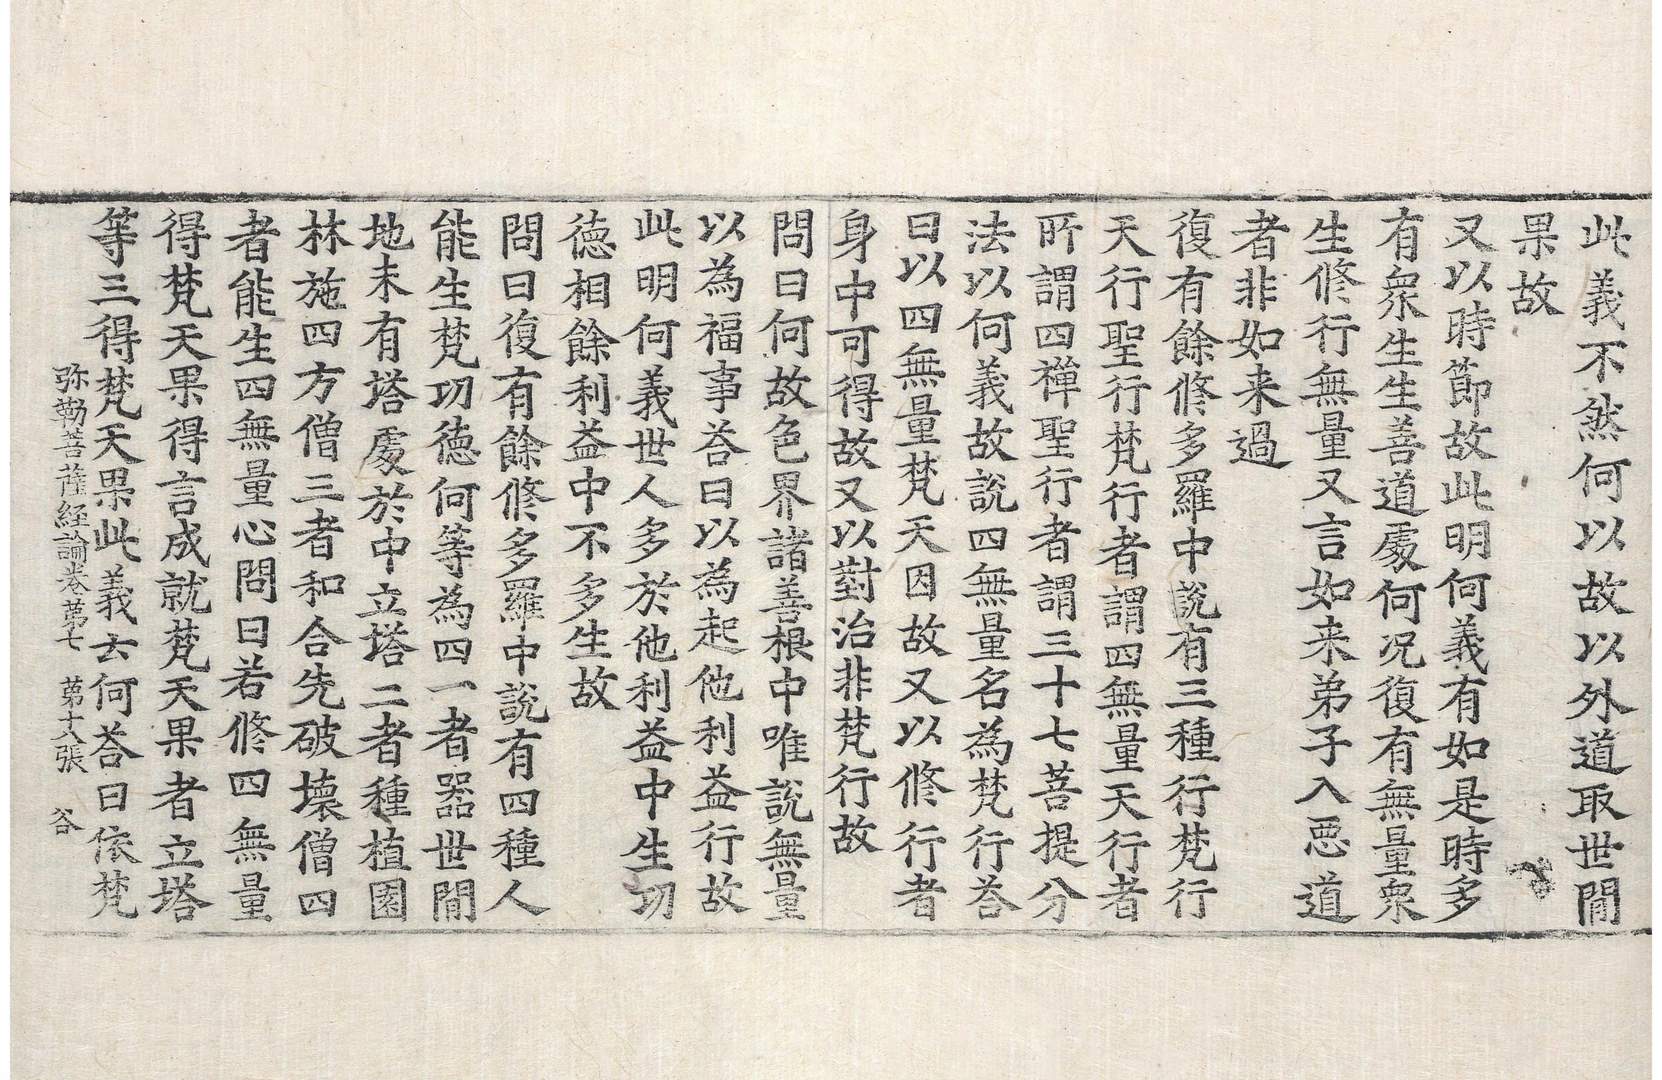 此義不然何以故以外道取世間
果故
又以時節故此明何義有如是時多
有衆生生善道處何况復有無量衆
生修行無量又言如来弟子入惡道
者非如来過
復有餘修多羅中說有三種行梵行
天行聖行梵行者謂四無量天行者
所謂四禪聖行者謂三十七菩提分
法以何義故說四無量名為梵行荅
曰以四無量梵天因故又以修行者
身中可得故又以對治非梵行故
問曰何故色界諸善根中唯說無量
以為福事荅曰以為起他利益行故
此明何義世人多於他利益中生功
德相餘利益中不多生故
問曰復有餘修多羅中說有四種人
能生梵功德何等為四一者器世間
地未有塔處於中立塔二者種植園
林施四方僧三者和合先破壞僧四
者能生四無量心問曰若修四無量
得梵天果得言成就梵天果者立塔
等三得梵天果此義云何荅曰依梵
弥勒菩薩経論卷苐七 苐十六張 谷